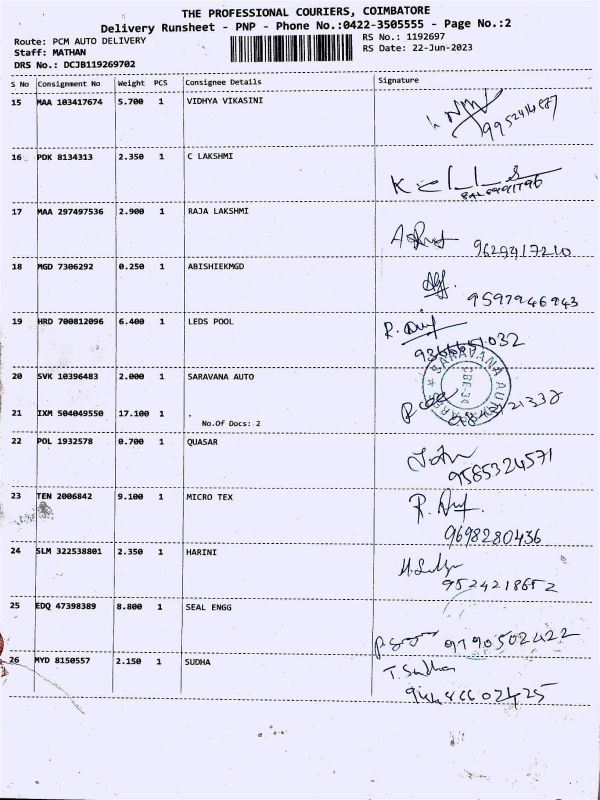 THE PROFESSIONAL COURIERS, COIMBATORE
Delivery Runsheet - PNP - Phone No.:0422-3505555 - Page No.:2
Route: PCM AUTO DELIVERY RS No.: 1192697
Staff: MATHAN RS Date: 22-Jun-2023
DRS No.: DCJB119269702
S No Consignment No Weight PCS Consignee Details Signature
15 MAA 103417674 5.700 1 VIDHYA VIKASINI
9952414687
16 PDK 8134313 2.350 1 C LAKSHMI
17 MAA 297497536 2.900 1 RAJA LAKSHMI
9629917210
18 MGD 7306292 0.250 1 ABISHIEKMGD
9597946943
19 HRD 700812096 6.400 1 LEDS POOL
R.
20 SVK 10396483 2.000 1 SARAVANA AUTO
SARAVANA AUTO
21 IXM 504049550 17.100 1 .
No.Of Docs: 2
22 POL 1932578 0.700 1 QUASAR
9585324571
23 TEN 2006842 9.100 1 MICRO TEX
R.
9698280436
24 SLM 322538801 2.350 1 HARINI
9524218652
25 EDQ 47398389 8.800 1 SEAL ENGG
9790502422
26 MYD 8150557 2.150 1 SUDHA
T. Sudha